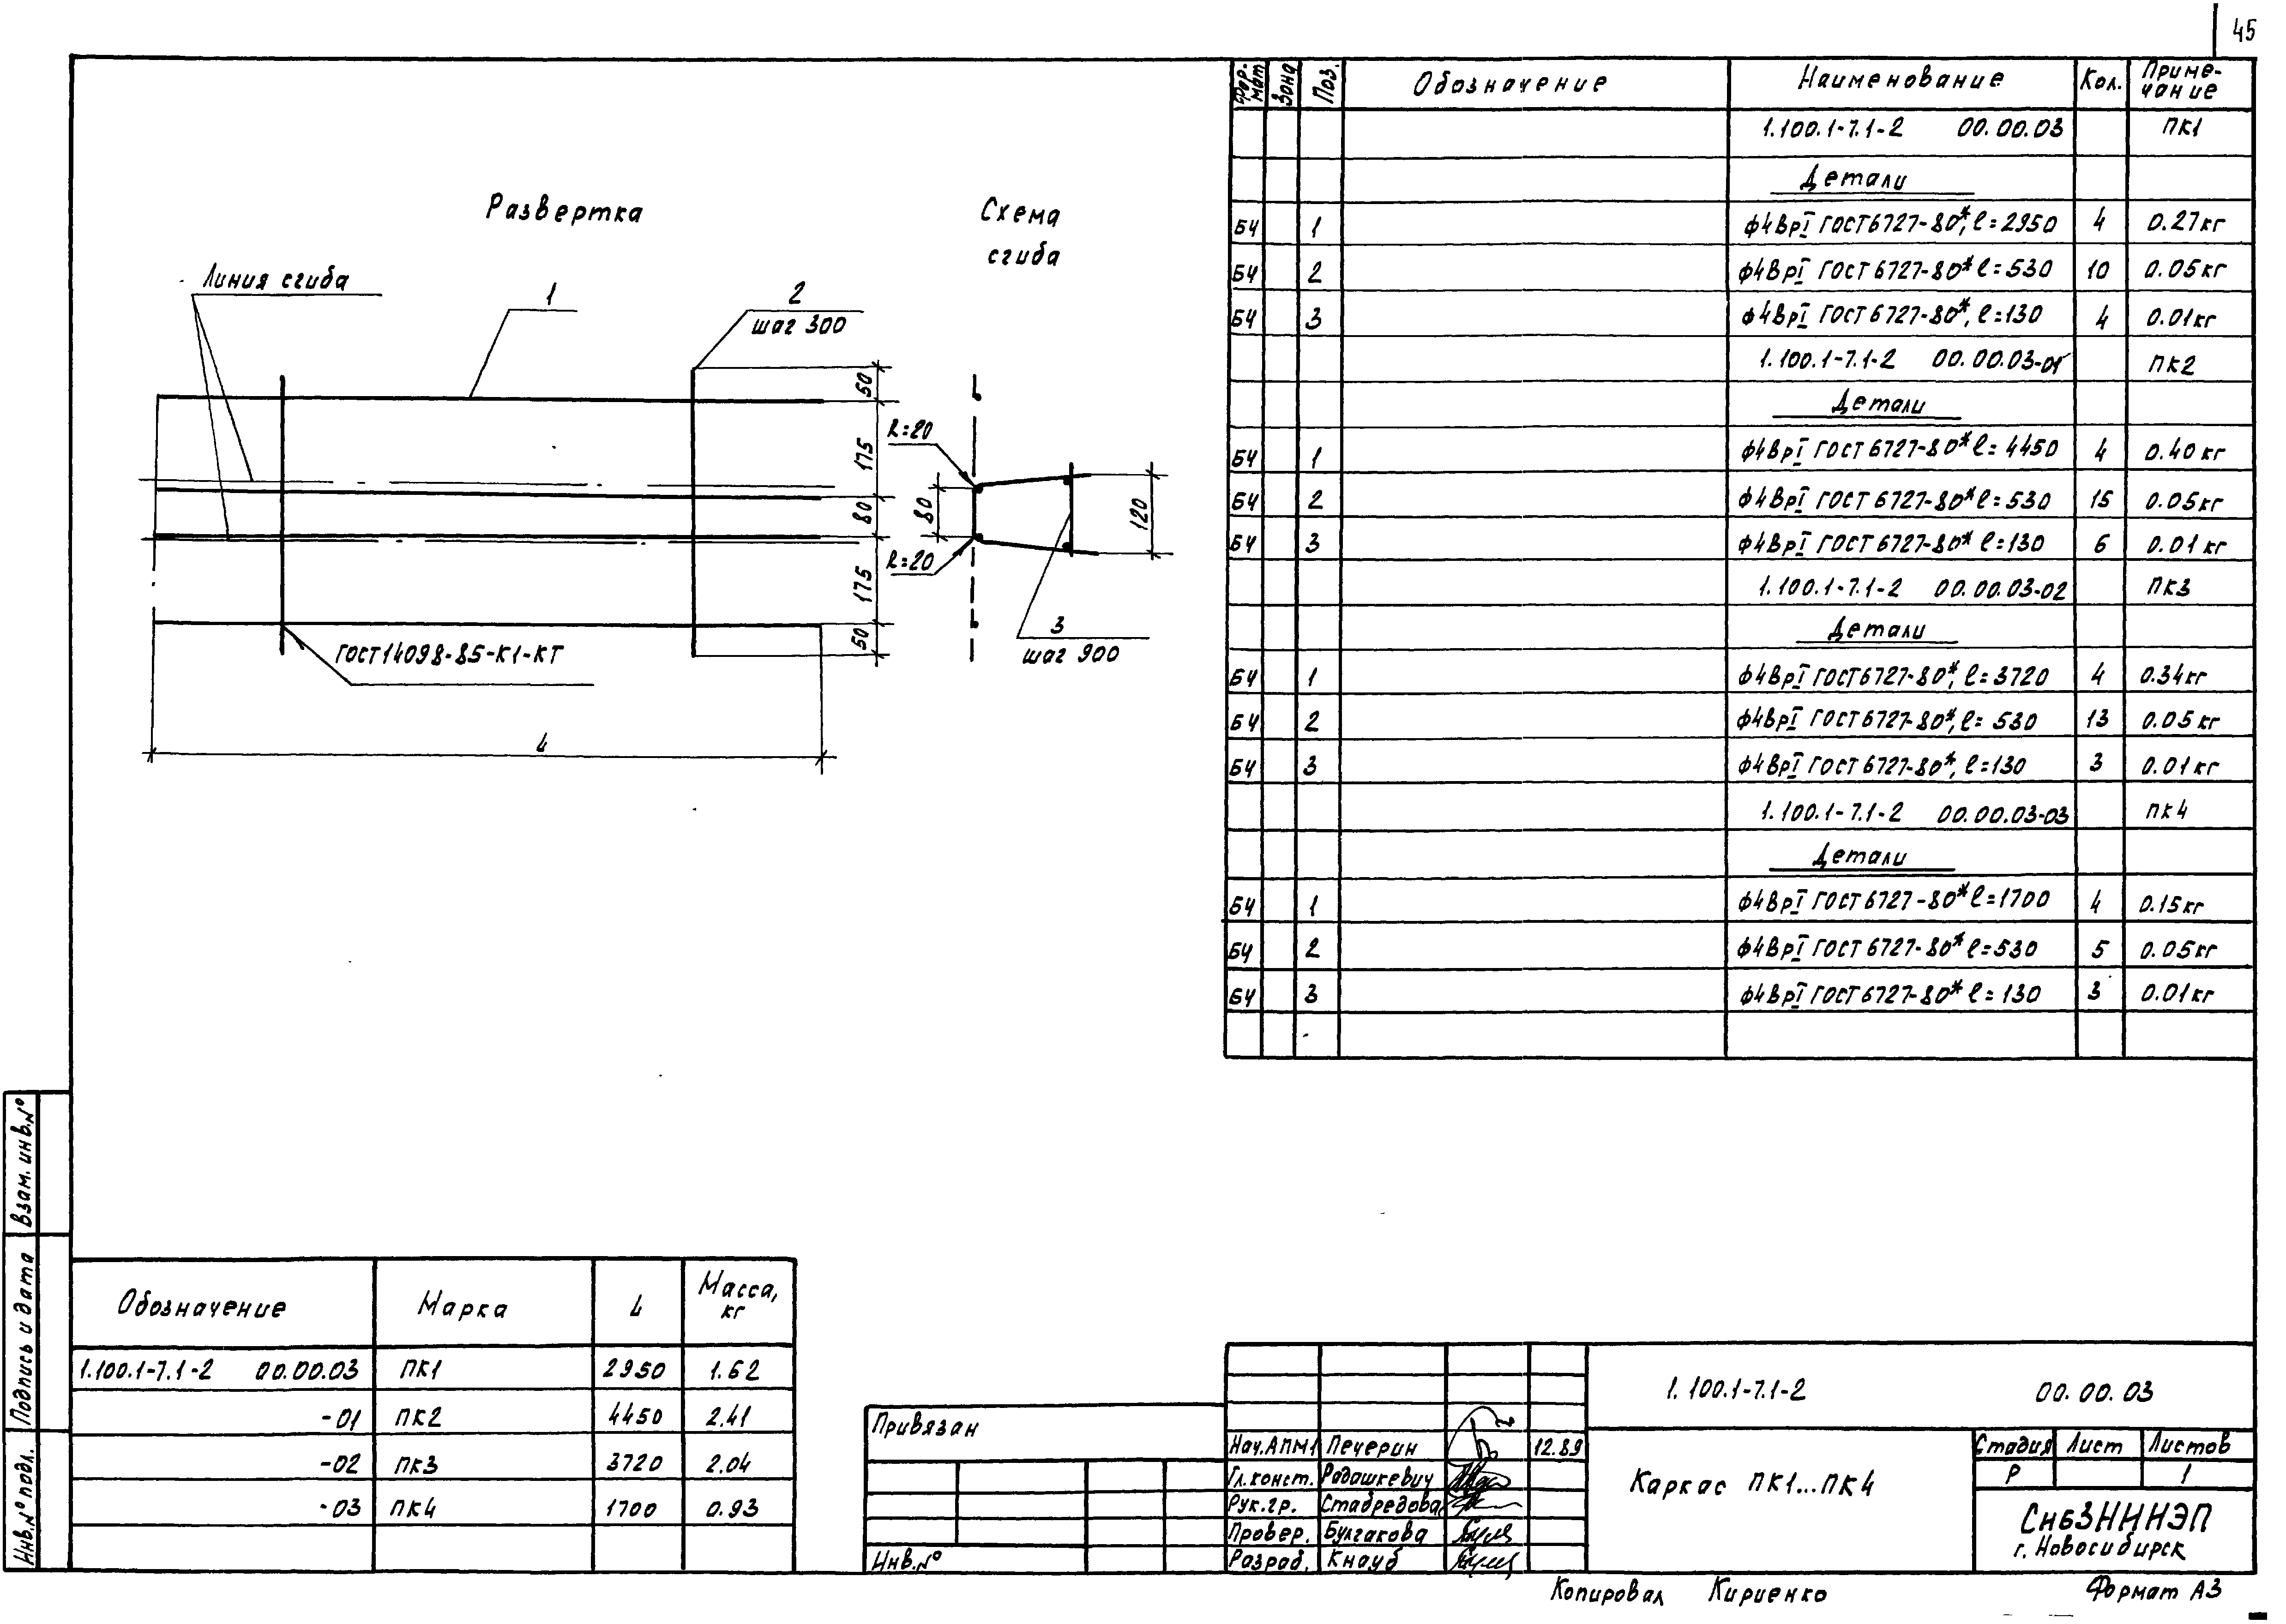 45
Развертка
Схема
сгиба
Линия сгиба
1
2
шаг 300
50
175
80
175
50
R=20
80
R=20
120
3
шаг 900
ГОСТ14098-85-К1-КТ
L
Фор-
мат Зона Поз. Обозначение Наименование Кол. Приме-
чание
1.100.1-7.1-2 00.00.03 ПК1
Детали
БЧ 1 ф4ВрI ГОСТ6727-80*, l=2950 4 0.27кг
БЧ 2 ф4ВрI ГОСТ6727-80* l=530 10 0.05кг
БЧ 3 ф4ВрI ГОСТ6727-80*, l=130 4 0.01кг
1.100.1-7.1-2 00.00.03-01 ПК2
Детали
БЧ 1 ф4ВрI ГОСТ6727-80* l=4450 4 0.40кг
БЧ 2 ф4ВрI ГОСТ6727-80* l=530 15 0.05кг
БЧ 3 ф4ВрI ГОСТ6727-80* l=130 6 0.01кг
1.100.1-7.1-2 00.00.03-02 ПК3
Детали
БЧ 1 ф4ВрI ГОСТ6727-80*, l=3720 4 0.34кг
БЧ 2 ф4ВрI ГОСТ6727-80*, l=530 13 0.05кг
БЧ 3 ф4ВрI ГОСТ6727-80*, l=130 3 0.01кг
1.100.1-7.1-2 00.00.03-03 ПК4
Детали
БЧ 1 ф4ВрI ГОСТ6727-80* l=1700 4 0.15кг
БЧ 2 ф4ВрI ГОСТ6727-80* l=530 5 0.05кг
БЧ 3 ф4ВрI ГОСТ6727-80* l=130 3 0.01кг
Взам. инв.№
Подпись и дата
Инв.№ подл.
Обозначение Марка L Масса,
кг
1.100.1-7.1-2 00.00.03 ПК1 2950 1.62
-01 ПК2 4450 2.41
-02 ПК3 3720 2.04
-03 ПК4 1700 0.93
Привязан
Инв.№
Нач.АПМ1 Печерин 12.89
Гл.конст. Радашкевич
Рук.гр. Стабредова
Провер. Булгакова
Разраб. Кнауб
1.100.1-7.1-2 00.00.03
Каркас ПК1...ПК4
Стадия Лист Листов
Р 1
СибЗНИИЭП
г. Новосибирск
Копировал Кириенко
Формат А3